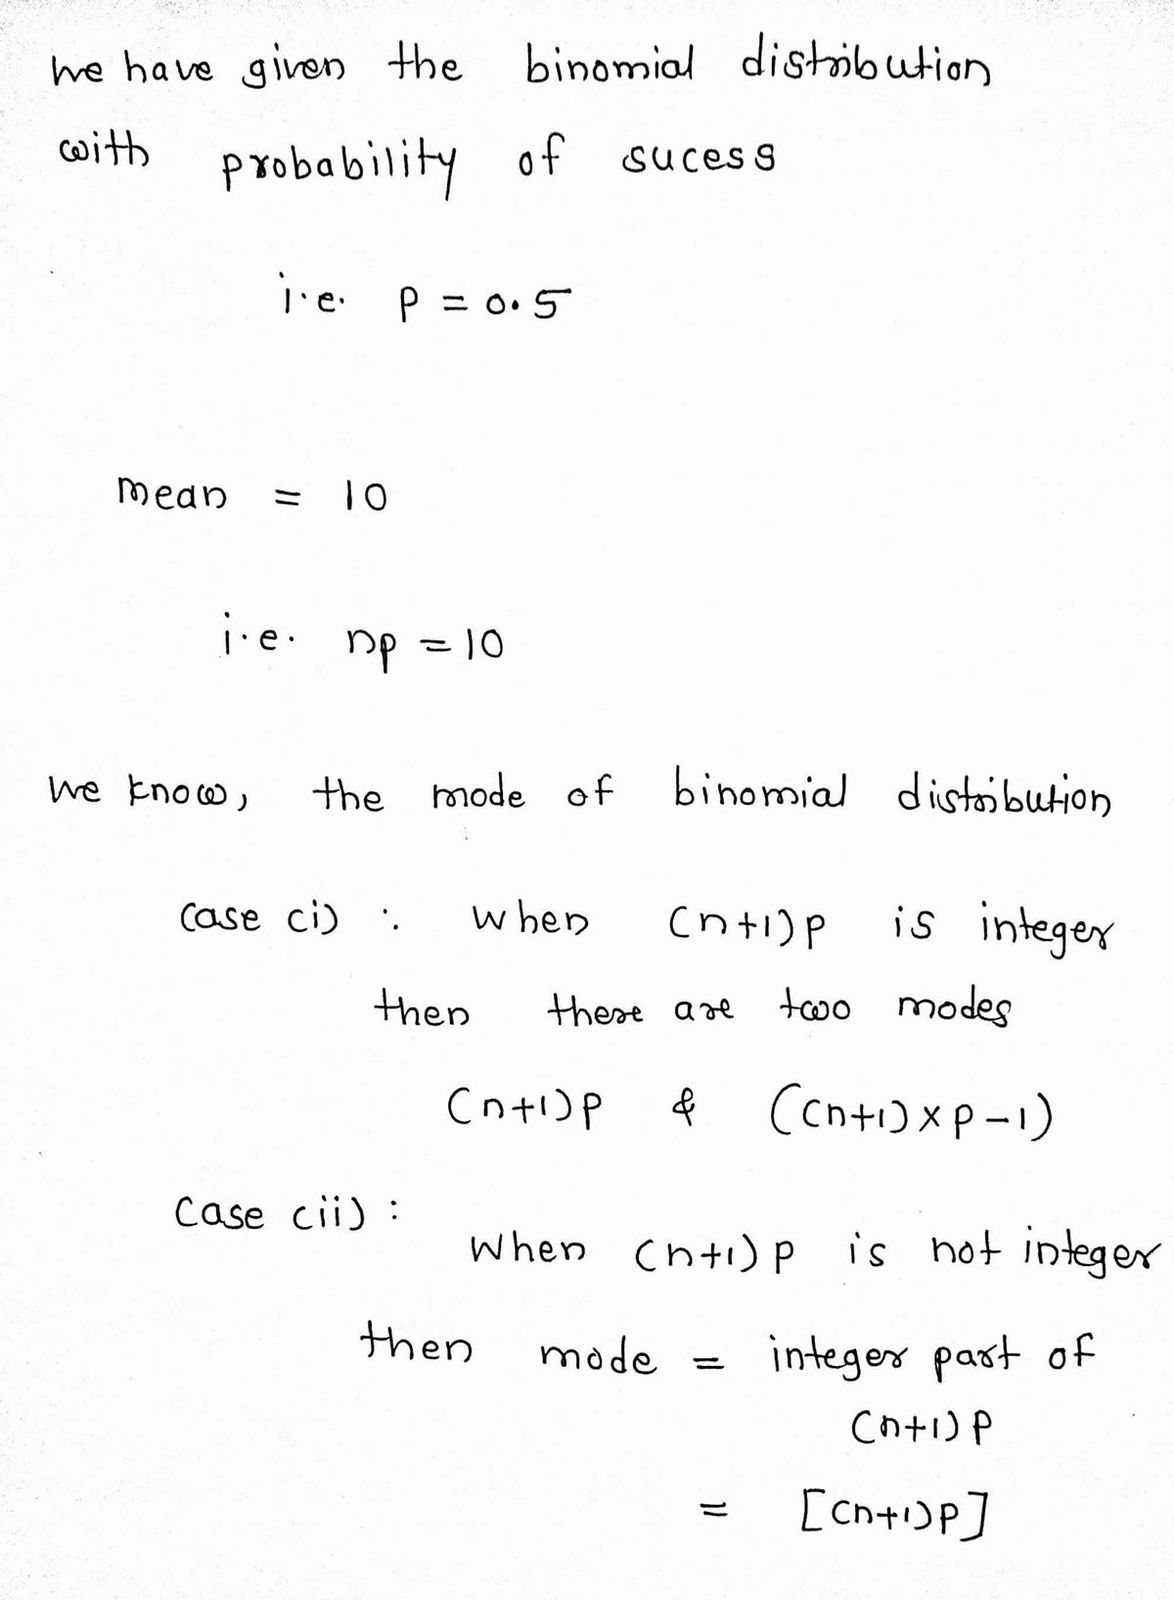 we have given the binomial distribution
with probability of sucess
i.e. p = 0.5
mean = 10
i.e. np = 10
we know, the mode of binomial distribution
case (i) : when (n+1)p is integer
then there are two modes
(n+1)p & ((n+1)×p-1)
case (ii) :
when (n+1)p is not integer
then mode = integer part of
(n+1)p
= [(n+1)p]